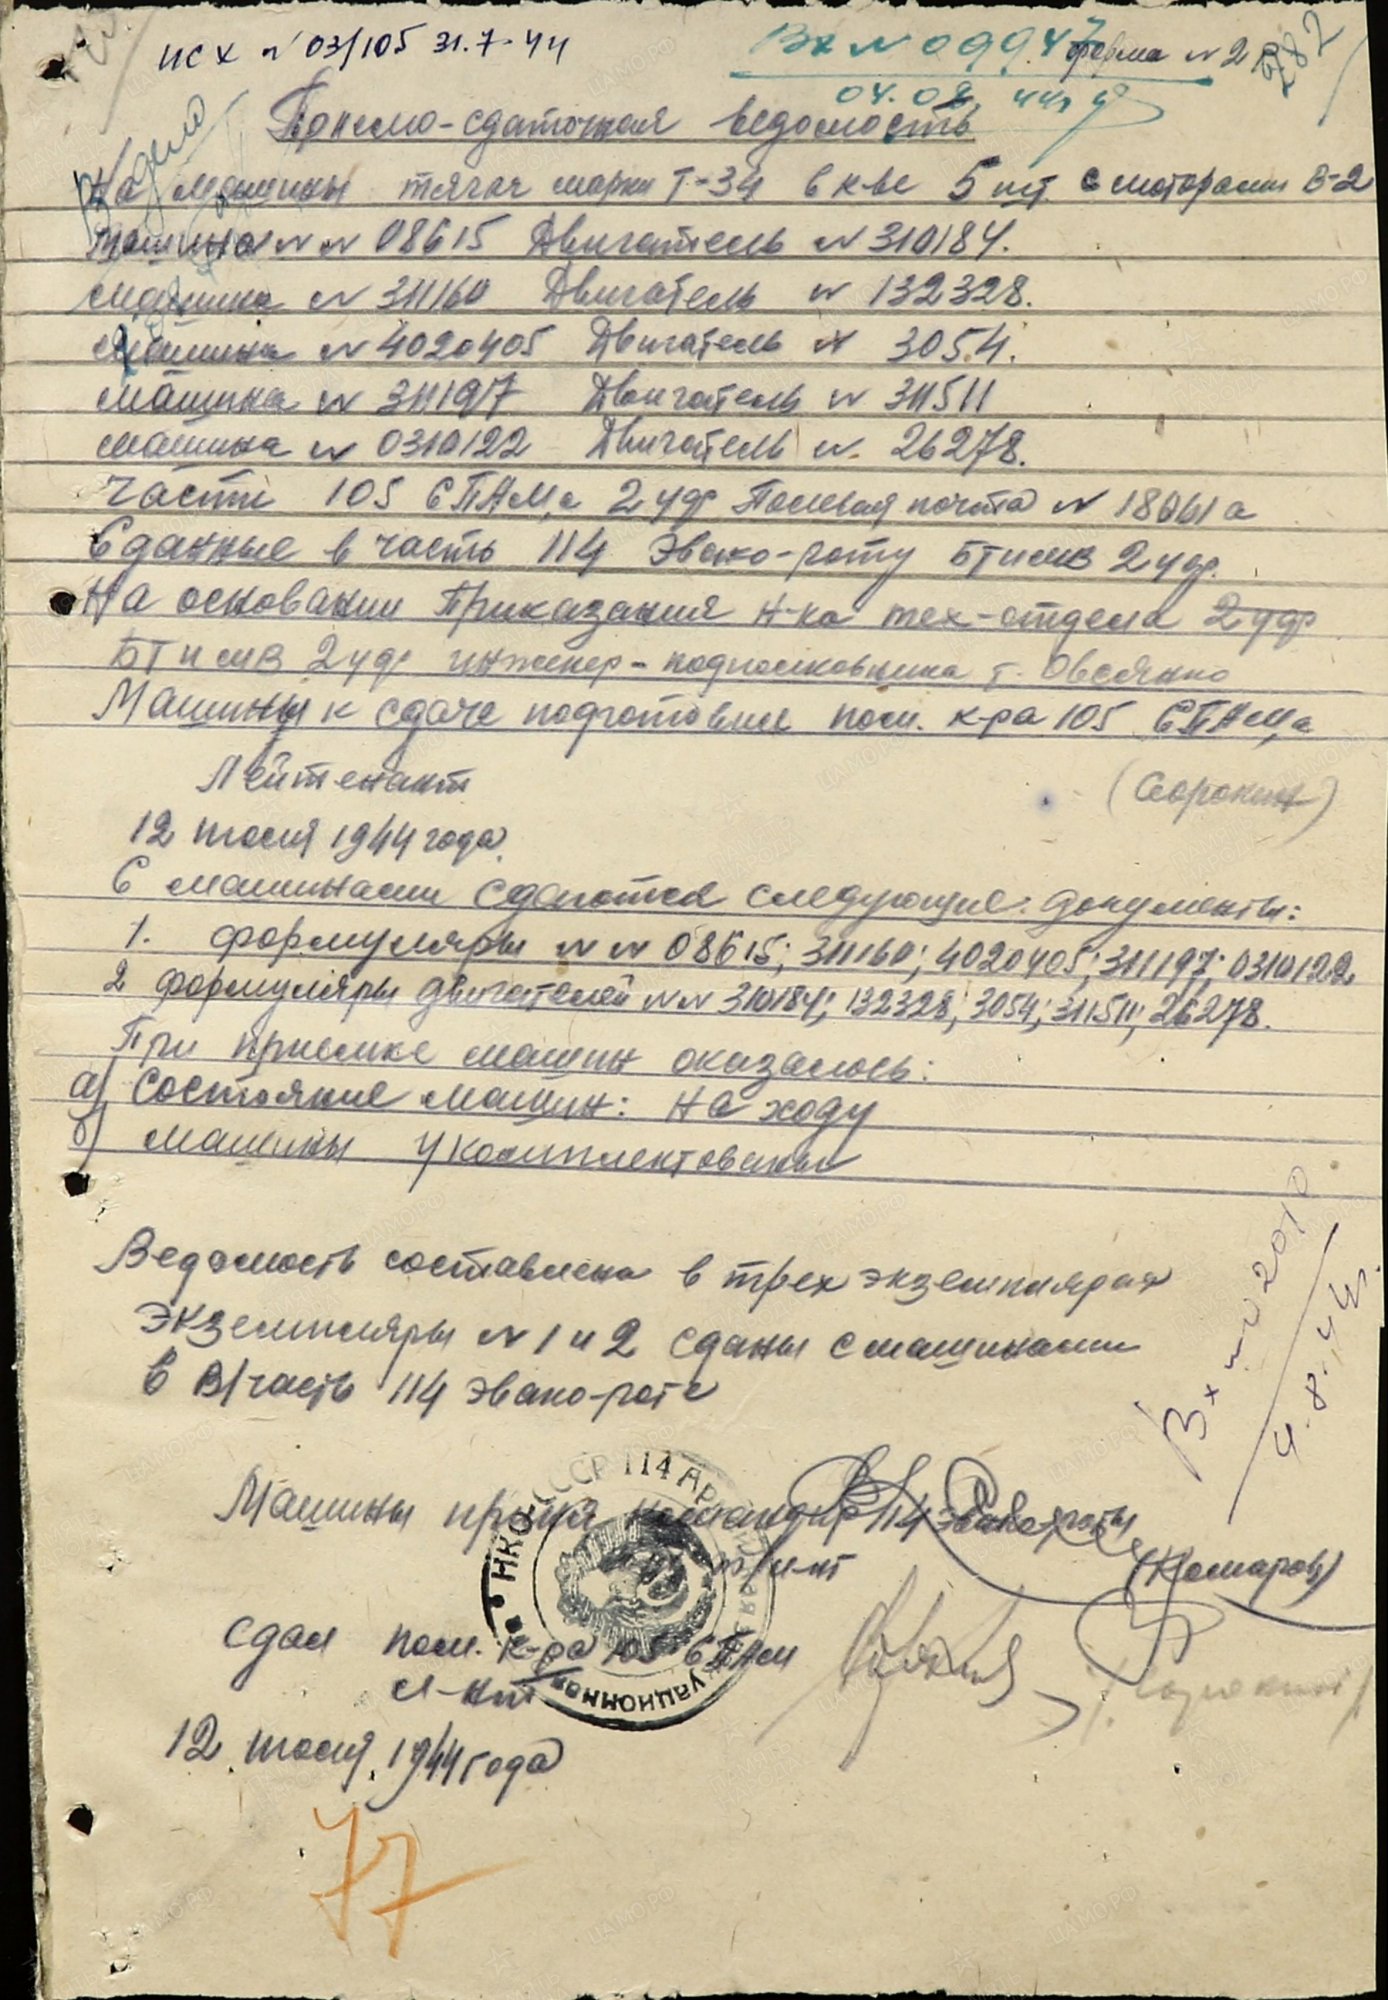 исх № 03/105 31.7-44
Вх № 09947
04.08.44г
форма № 2
282
В дело
Приемо-сдаточная ведомость
На машины тягач марки Т-34 в к-ве 5 шт. с моторами В-2
машина № № 08615 Двигатель № 310184.
машина № 311160 Двигатель № 132328.
машина № 4020405 Двигатель № 3054.
машина № 311197 Двигатель № 311511
машина № 0310122 Двигатель № 26278.
Части 105 СПАМ,а 2 уд. Полевая почта № 18061а
Сданные в часть 114 Эвако-роту БТиМВ 2 уд.
На основании Приказания Н-ка тех-отдела 2 уд
БТиМВ 2 уд. инженер-подполковника т. Овсянко
Машины к сдаче подготовил пом. к-ра 105 СПАМ,а
Лейтенант (Сорокин)
12 июля 1944 года.
С машинами сдаются следующие документы:
1. формуляры № № 08615; 311160; 4020405; 311197; 0310122
2 формуляры двигателей № № 310184; 132328; 3054; 311511; 26278.
При приемке машин оказалось:
а) состояние машин: на ходу
б) машины укомплектованы
Вх № 2010
4.8.44г.
Ведомость составлена в трех экземплярах
Экземпляры № 1 и 2 сданы с машинами
в в/часть 114 эвако-роте
Машины принял командир 114 эвако-роты
т/л-нт (Комаров)
НКО СССР 114 АР
Сдал пом. к-ра 105 СПАМ
л-нт (Сорокин)
12. июля. 1944 года
77